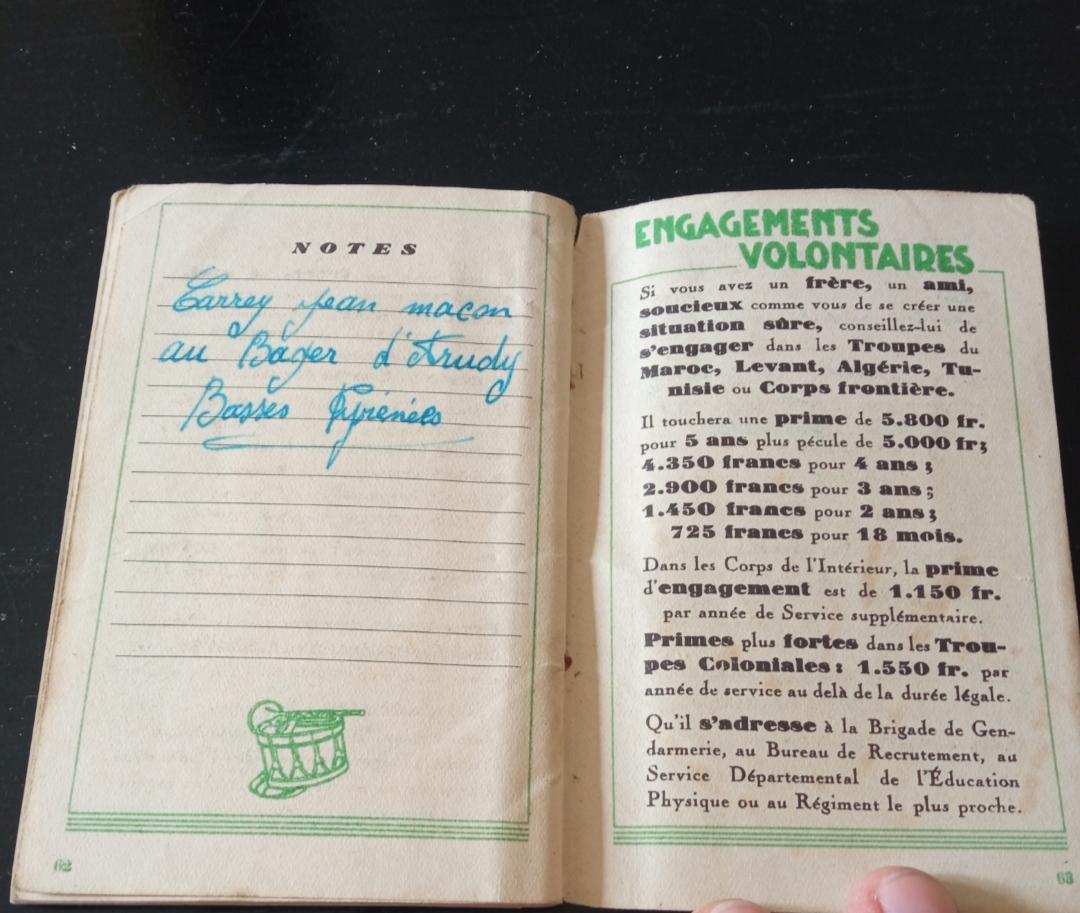 NOTES
Carrey jean macon
au Bager d'Arudy
Basses Pyrénées
62
ENGAGEMENTS
VOLONTAIRES
Si vous avez un frère, un ami,
soucieux comme vous de se créer une
situation sûre, conseillez-lui de
s'engager dans les Troupes du
Maroc, Levant, Algérie, Tu-
nisie ou Corps frontière.
Il touchera une prime de 5.800 fr.
pour 5 ans plus pécule de 5.000 fr;
4.350 francs pour 4 ans ;
2.900 francs pour 3 ans ;
1.450 francs pour 2 ans ;
725 francs pour 18 mois.
Dans les Corps de l'Intérieur, la prime
d'engagement est de 1.150 fr.
par année de Service supplémentaire.
Primes plus fortes dans les Trou-
pes Coloniales : 1.550 fr. par
année de service au delà de la durée légale.
Qu'il s'adresse à la Brigade de Gen-
darmerie, au Bureau de Recrutement, au
Service Départemental de l'Éducation
Physique ou au Régiment le plus proche.
63